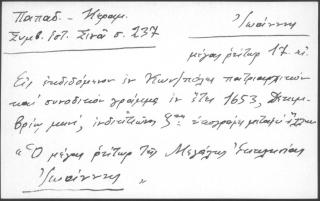 Παπαδ. - Κεραμ.
Συμβ. ἱστ. Σινᾶ σ. 237
Ἰωάννης
μέγας ῥήτωρ 17 αἰ.
Εἰς ἐκδιδόμενον ἐν Κων/πόλει πατριαρχικὸν
καὶ συνοδικὸν γράμμα ἐν ἔτει 1653, Δεκεμ-
βρίῳ μηνί, ἰνδικτιῶνος ζης ὑπογράφει μεταξὺ ἄλλων
"Ὁ μέγας ῥήτωρ τῆς Μεγάλης Ἐκκλησίας
Ἰωάννης"